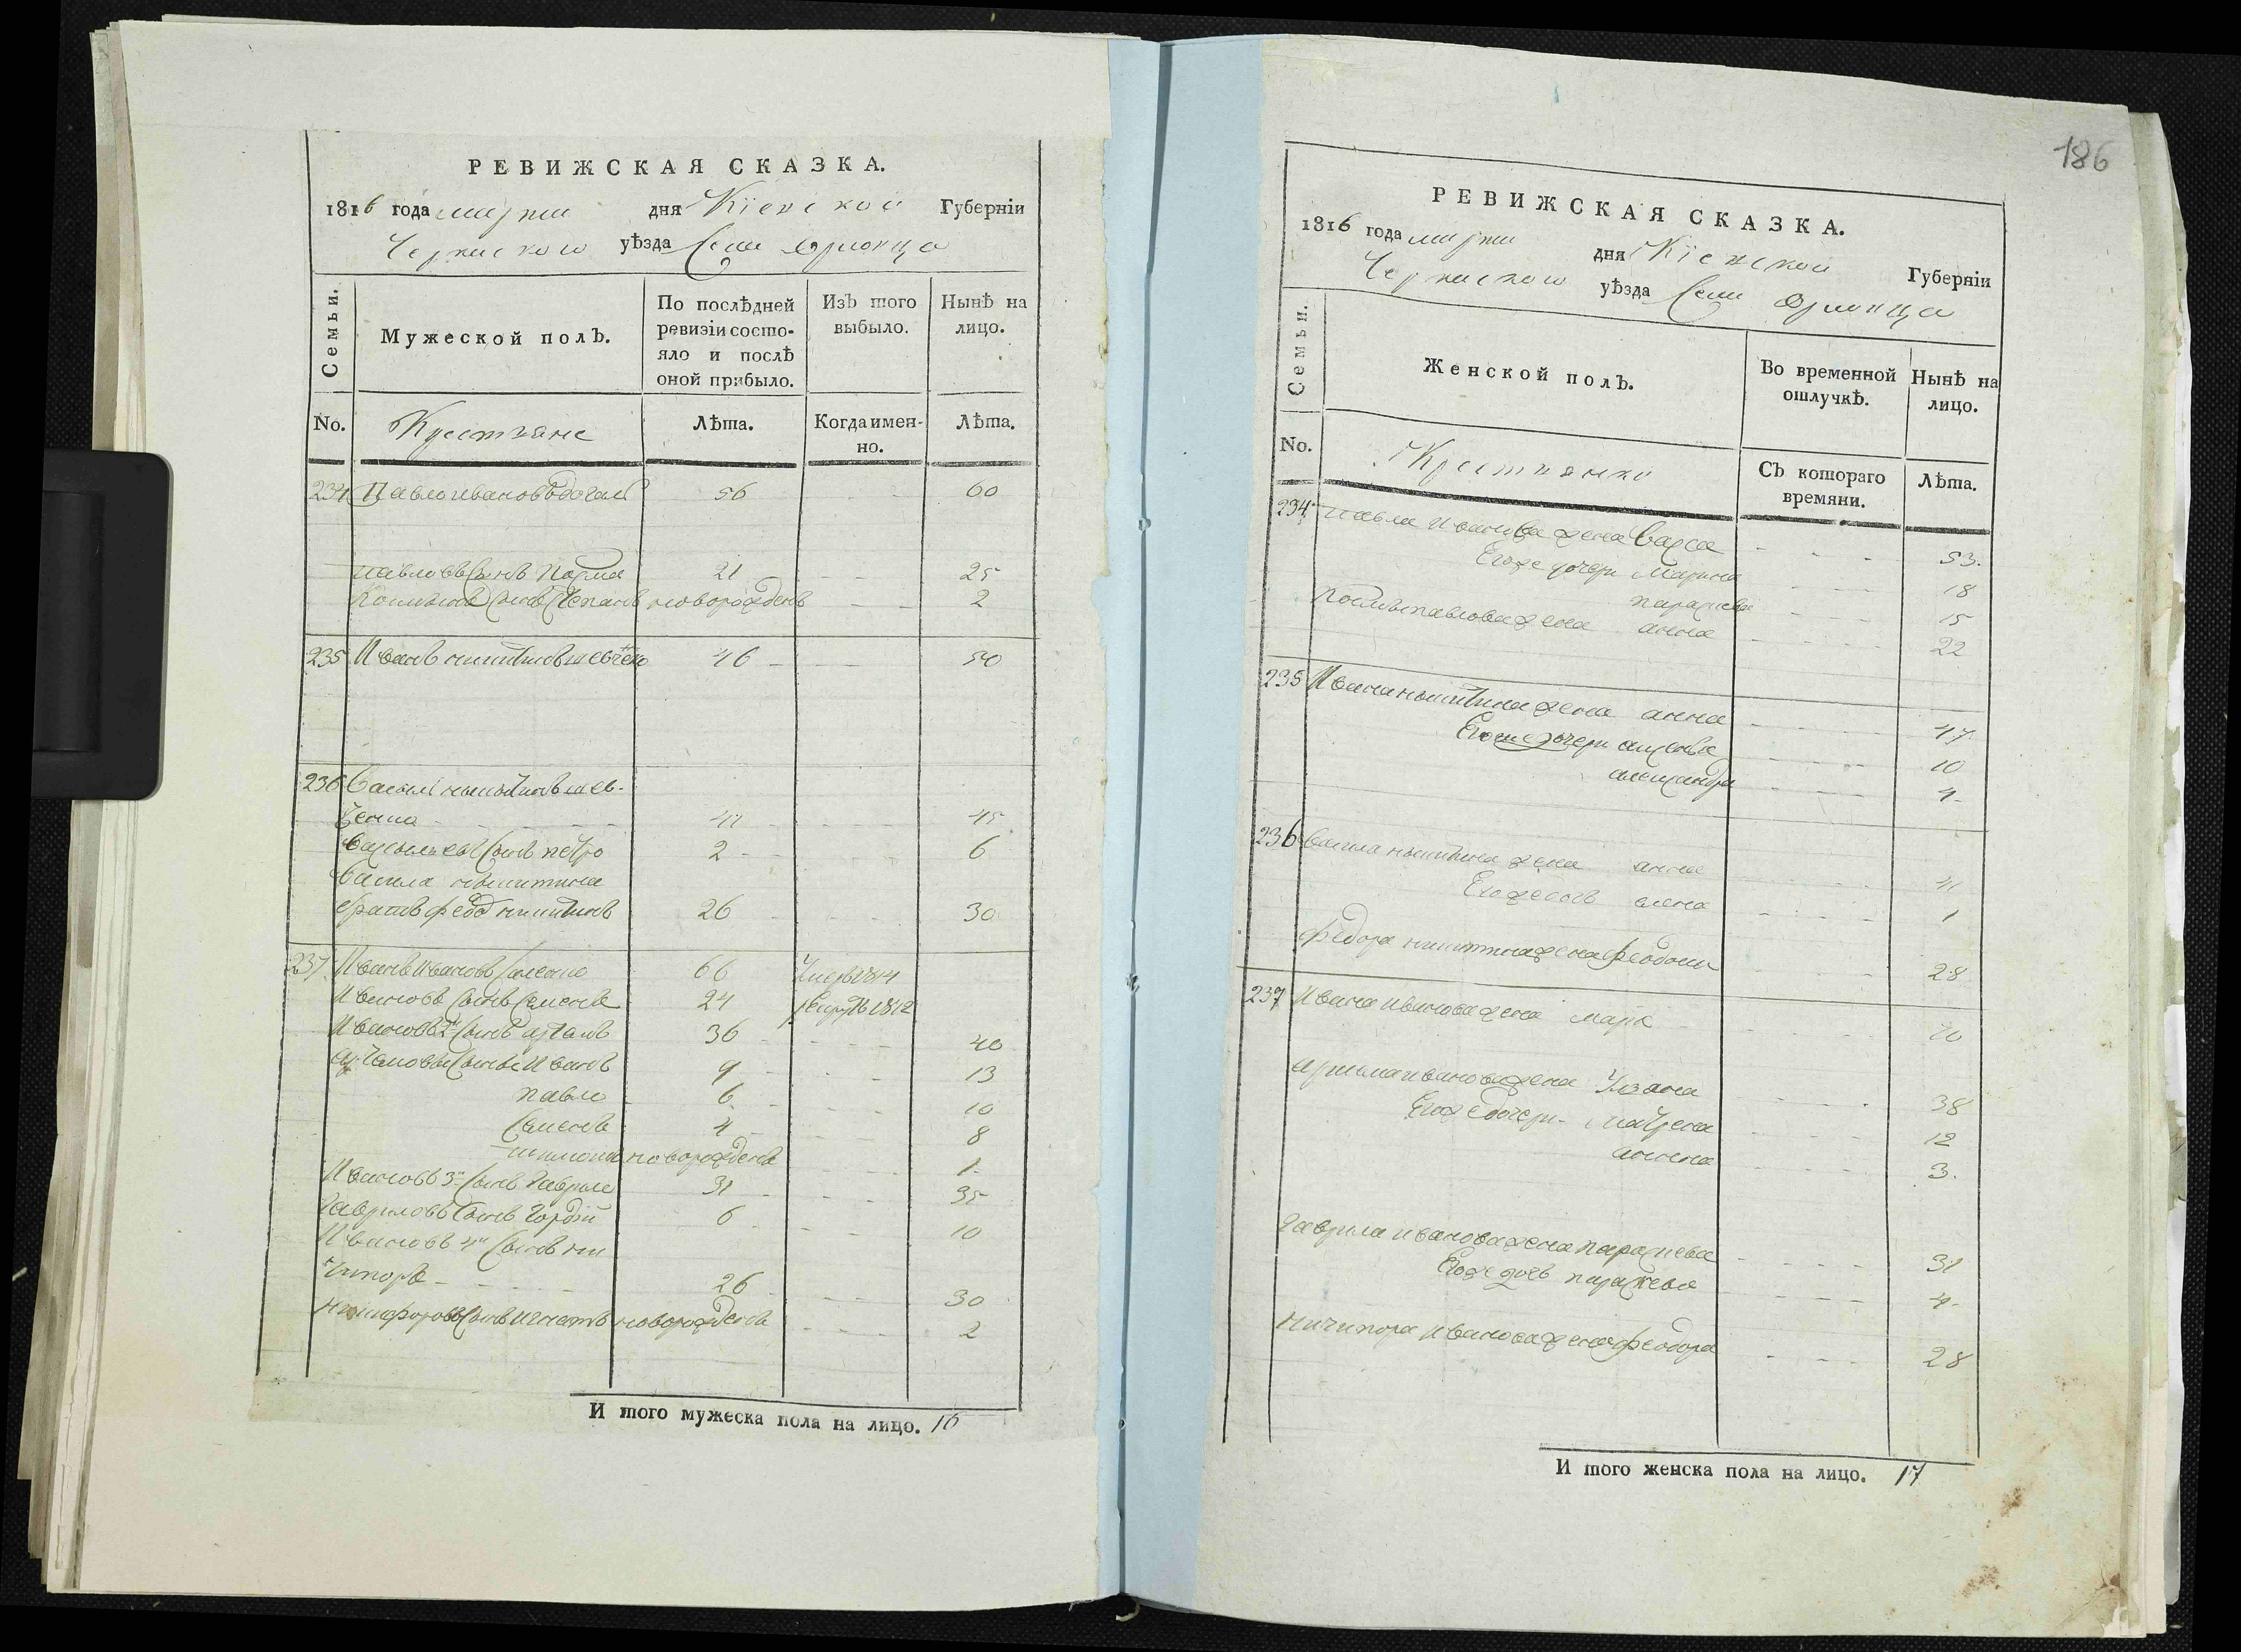 РЕВИЖСКАЯ СКАЗКА.
1816 года марта дня Кіевской Губерніи
Черкаского уѣзда Села
Семьи.
Мужеской полъ.
По послѣдней ревизіи состояло и послѣ оной прибыло.
Изъ того выбыло.
Нынѣ на лицо.
No.
Крестяне
Лѣта.
Когда именно.
Лѣта.
234 Павло Ивановъ 56 60
Павловъ Сынъ 21 25
Сынъ Степанъ новорожденъ 2
235 Иванъ никитинъ шевченко 46 50
236 Василi никитинъ шев-
ченко 41 45
Васильевъ Сынъ петро 2 6
Васила никитина
братъ федоръ никитинъ 26 30
237 Иванъ Ивановъ 66 1814
Ивановъ Сынъ Семенъ 24 1812
Ивановъ 2й Сынъ 36 40
Сыны Иванъ 9 13
павло 6 10
Семенъ 4 8
новорожденъ 1
Ивановъ 3й Сынъ Гаврило 31 35
Гавриловъ Сынъ Гордiй 6 10
Ивановъ 4й Сынъ ни
чипоръ 26 30
Никифоровъ Сынъ Игнатъ новорожденъ 2
И того мужеска пола на лицо. 16
186
РЕВИЖСКАЯ СКАЗКА.
1816 года марта дня Кіевской Губерніи
Черкаского уѣзда Села
Семьи.
Женской полъ.
Во временной отлучкѣ.
Нынѣ на лицо.
No.
Крестянки
Съ котораго времяни.
Лѣта.
234 Павла Иванова жена 53.
Его же дочери Марина 18
параскева 15
павлова жена анна 22
235 Ивана никитина жена анна 47
Его же дочери 10
александра 4
236 Васила никитина жена анна 41
Его же дочь елена 1
Федора никитина жена феодосия 28
237 Ивана иванова жена марія
иванова жена 38
Его же дочери матрена 12
3.
Гаврила иванова жена параскева 31
Его же дочь параскева 4
Ничипора Иванова жена феодора 28
И того женска пола на лицо. 17